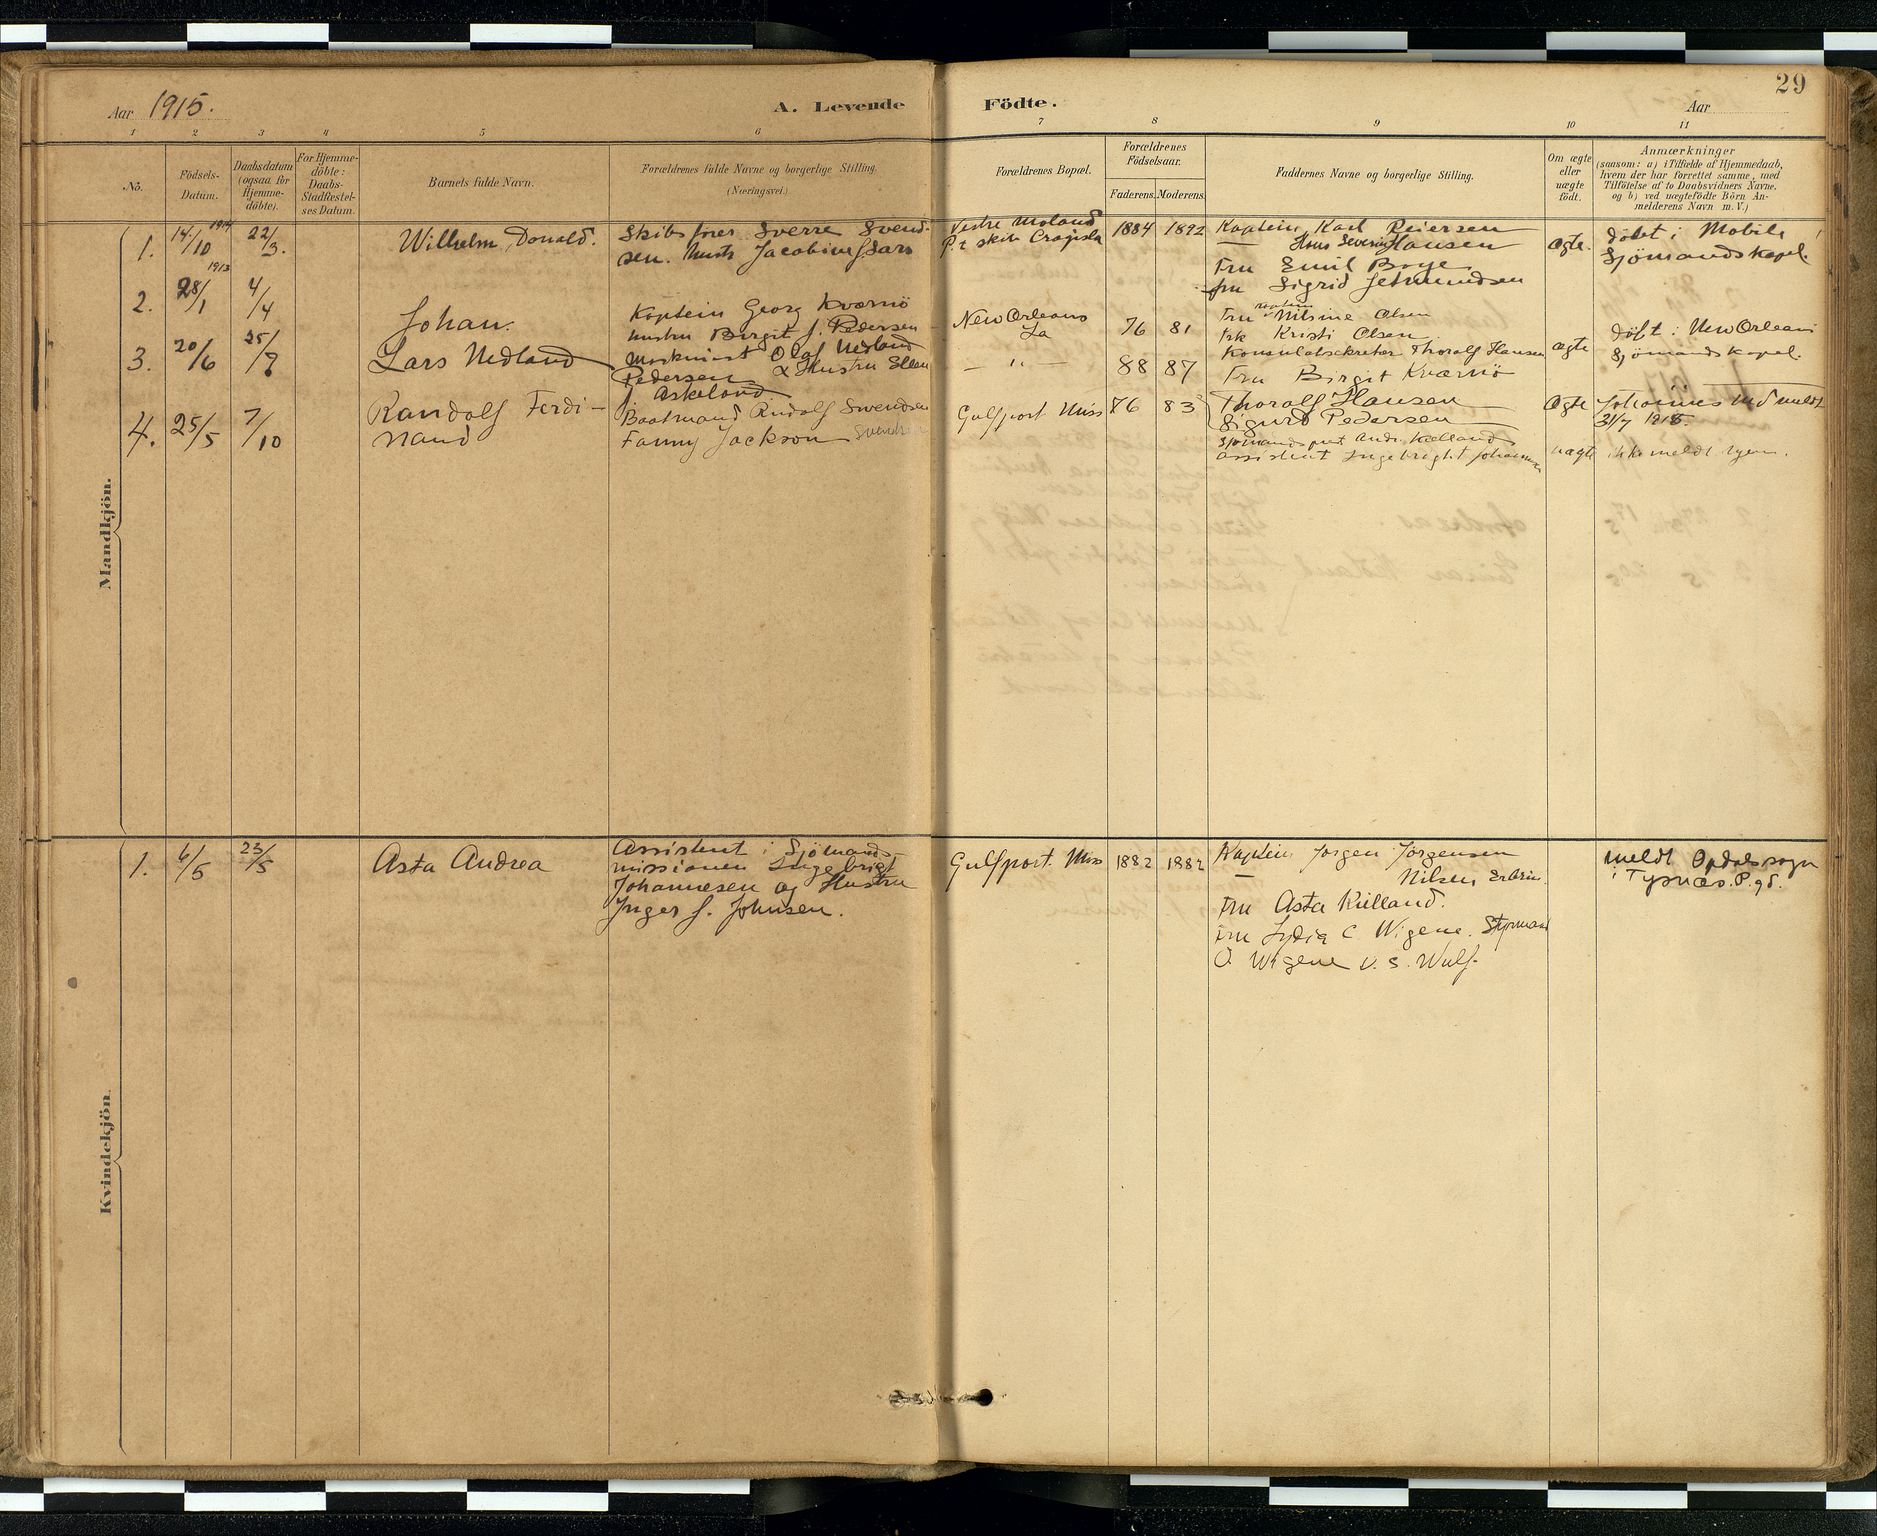 Aar 1915.
A. Levende
Födte.
Aar
29
1 2 3 4 5 6 7 8 9 10 11
No.
Födsels-
Datum.
Daabsdatum
(ogsaa for
Hjemme-
döbte).
For Hjemme-
döbte:
Daabs-
Stadfæstel-
ses Datum.
Barnets fulde Navn.
Forældrenes fulde Navne og borgerlige Stilling.
(Næringsvei.)
Forældrenes Bopæl.
Forældrenes
Födselsaar.
Faderens. Moderens.
Faddernes Navne og borgerlige Stilling.
Om ægte
eller
uægte
födt.
Anmærkninger
(saasom: a) i Tilfælde af Hjemmedaab,
hvem der har forrettet samme, med
Tilföielse af to Daabsvidners Navne,
og b) ved uægtefödte Börn An-
melderens Navn m. V.)
Mandkjön.
1.
1914
14/10
22/3.
Wilhelm Donald.
Skibsfører Sverre Svend-
sen. Hustr Jacobine f. Lars
Vestre Moland
P. t skib
1884 1892
Kaptein Karl Peiersen
— Hans Severin Hansen
Fru Emil Boye
fru Sigrid
ægte.
døbt i Mobile
Sjømandskapel.
2.
1913
28/1
4/4
Johan.
Kaptein Georg Kværnø
hustru Birgit f. Pedersen
New Orleans
La
76 81
Fru kaptein Nilsine Olsen
Frk Kristi Olsen
døft i New Orleans
Sjømandskapel.
3.
20/6
25/7
Lars Nedland
Maskinist Olaf Nedland
Pedersen & Hustru Ellen
f. Askeland
— " —
88 87
Konsulatsekretær Thoralf Hansen
Fru Birgit Kværnø
ægte
4.
25/5
7/10
Randolf Ferdi-
nand
Baatmand Rudolf Svendsen
Fanny Jackson Svendsen
Gulfport Miss
76 83
Thoralf Hansen
Sigurd Pedersen
Sjømandsprest Andr. Kielland
assistent Ingebright Johannesen
Ægte
uægte
31/7 1918.
ikke meldt igjen.
Kvindekjön.
1.
6/5
23/5
Asta Andrea
Assistent i Sjømands-
missionen Ingebrigt
Johannesen og Hustru
Inger f. Johnsen.
Gulfport. Miss
1882 1882
Kaptein Jørgen Jørgensen
— Nilsen
Fru Asta Kielland.
Fru Lydia C Wigene. Styrmand
O. Wigene V. S. Wulf.
meldt Opdals sogn
i Tysnæs. P. gd.